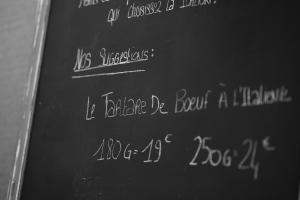 qui choisissez la
Nos Suggestions :
Le Tartare De Boeuf À L'Italienne
180G = 19€ 250G = 24€